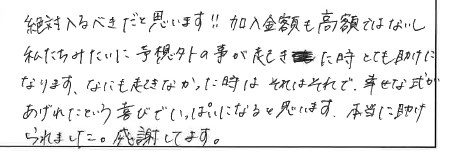 絶対入るべきだと思います!! 加入金額も高額ではないし
私たちみたいに予想外の事が起きた時とても助けに
なります、なにも起きなかった時はそれはそれで、幸せな式が
あげれたという喜びでいっぱいになると思います、本当に助け
られました。感謝してます。